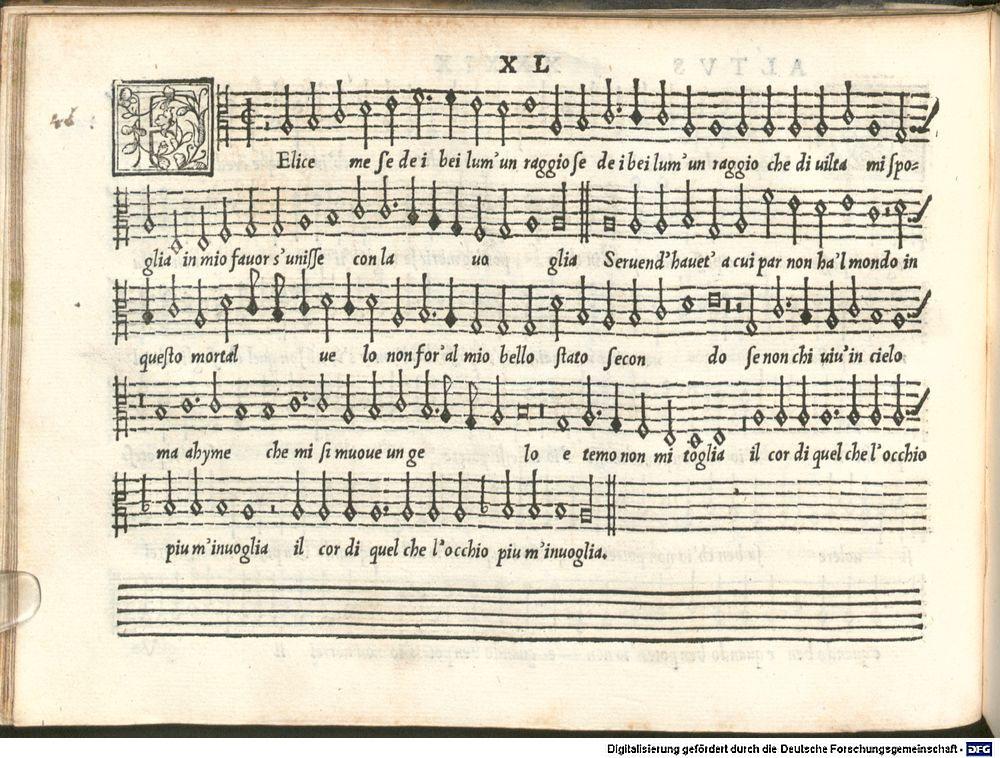 XL
46
FElice me se de i bei lum' un raggio se de i bei lum' un raggio che di uilta mi spo=
glia in mio fauor s'unisse con la uo glia Seruend' hauet' a cui par non ha'l mondo in
questo mortal ue lo non for' al mio bello stato secon do se non chi uiu' in cielo
ma ahyme che mi si muoue un ge lo e temo non mi toglia il cor di quel che l'occhio
piu m'inuoglia il cor di quel che l'occhio piu m'inuoglia.
Digitalisierung gefördert durch die Deutsche Forschungsgemeinschaft - DFG